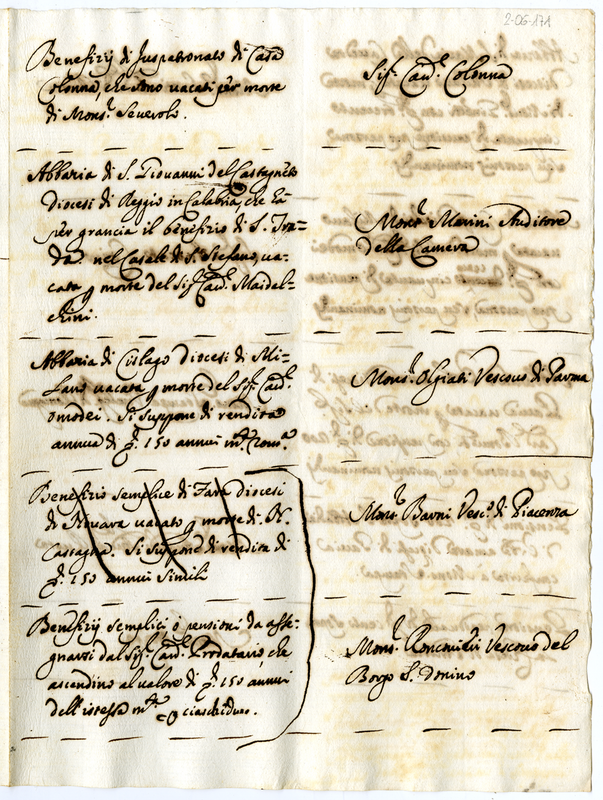 2-06-171
Benefizij di Juspatronato di Casa
Colonna, che sono vacati per morte
di Mons.r Severolo.
Sig.r Card.l Colonna
Abbazia di S. Giovanni del Castagneto
diocesi di Reggio in Calabria, che hà
per grancia il benefizio di S.
nel Casale di S. Stefano, va-
cata p morte del Sig.r Card.l Maidel-
chini.
Mons.r Marini Auditore
della Camera
Abbazia di Cislago diocesi di Mi-
lano vacata p morte del Sig.r Card.l
Omodei. Si suppone di rendita
annua di 150 annui m.ta Rom.a
Mons.r Olgiati Vescovo di Parma
Benefizio semplice di Fara diocesi
di Novara vacato p morte di N.
Castagna. Si suppone di rendita di
150 annui simili
Mons.r Barni Vesc.o di Piacenza
Benefizij semplici, ò pensioni da asse-
gnarsi dal Sig.r Card.l Prodatario, che
ascendino al valore di 150 annui
dell'istessa m.ta p ciascheduno.
Mons.r Roncovieri Vescovo del
Borgo S. Donino